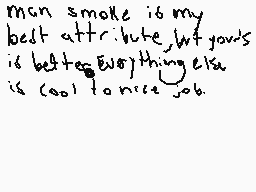 man smoke is my
best attribute, but yours
is better. Everything else
is cool to nice job.